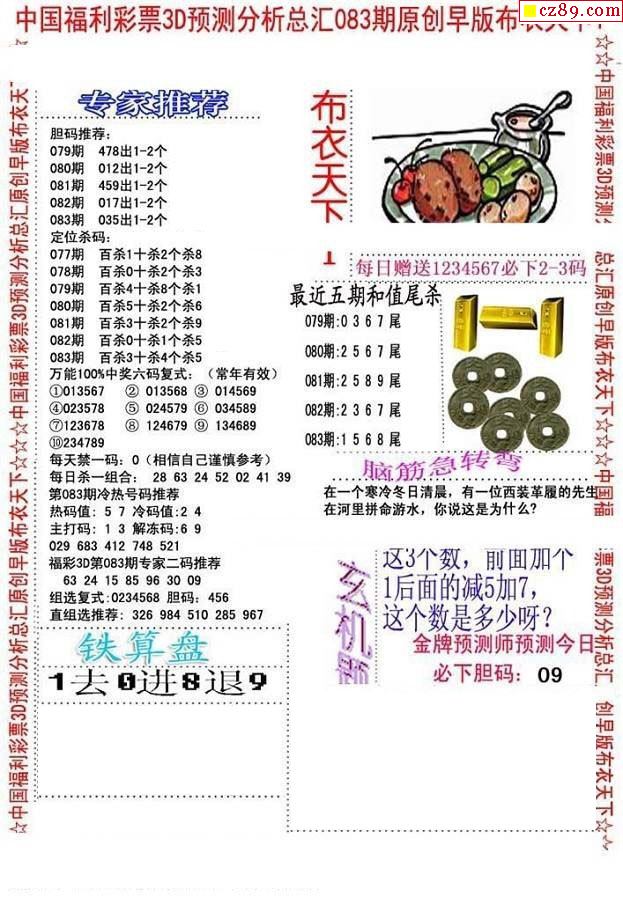 中国福利彩票3D预测分析总汇083期原创早版布衣天下
cz89.com
专家推荐
胆码推荐:
079期 478出1-2个
080期 012出1-2个
081期 459出1-2个
082期 017出1-2个
083期 035出1-2个
定位杀码:
077期 百杀1十杀2个杀8
078期 百杀0十杀2个杀3
079期 百杀4十杀8个杀1
080期 百杀5十杀2个杀6
081期 百杀3十杀2个杀9
082期 百杀0十杀1个杀5
083期 百杀3十杀4个杀5
万能100%中奖六码复式:（常年有效）
①013567 ② 013568 ③ 014569
④023578 ⑤ 024579 ⑥ 034589
⑦123678 ⑧ 124679 ⑨ 134689
⑩234789
每天禁一码: 0（相信自己谨慎参考）
每日杀一组合: 28 63 24 52 02 41 39
第083期冷热号码推荐
热码值: 5 7 冷码值:2 4
主打码: 1 3 解冻码:6 9
029 683 412 748 521
福彩3D第083期专家二码推荐
63 24 15 85 96 30 09
组选复式:0234568 胆码: 456
直组选推荐: 326 984 510 285 967
铁算盘
1去0进8退9
布衣天下
每日赠送1234567必下2-3码
最近五期和值尾杀
079期:0 3 6 7 尾
080期:2 5 6 7 尾
081期:2 5 8 9 尾
082期:2 3 6 7 尾
083期:1 5 6 8 尾
脑筋急转弯
在一个寒冷冬日清晨，有一位西装革履的先生
在河里拼命游水，你说这是为什么?
玄机
这3个数，前面加个
1后面的减5加7，
这个数是多少呀?
金牌预测师预测今日
必下胆码: 09
☆中国福利彩票3D预测分析总汇原创早版布衣天下☆☆☆中国福利彩票3D预测分析总汇原创早版布衣天
☆☆中国福利彩票3D预测
总汇原创早版布衣天下☆☆☆中国福
票3D预测分析总汇
创早版布衣天下☆